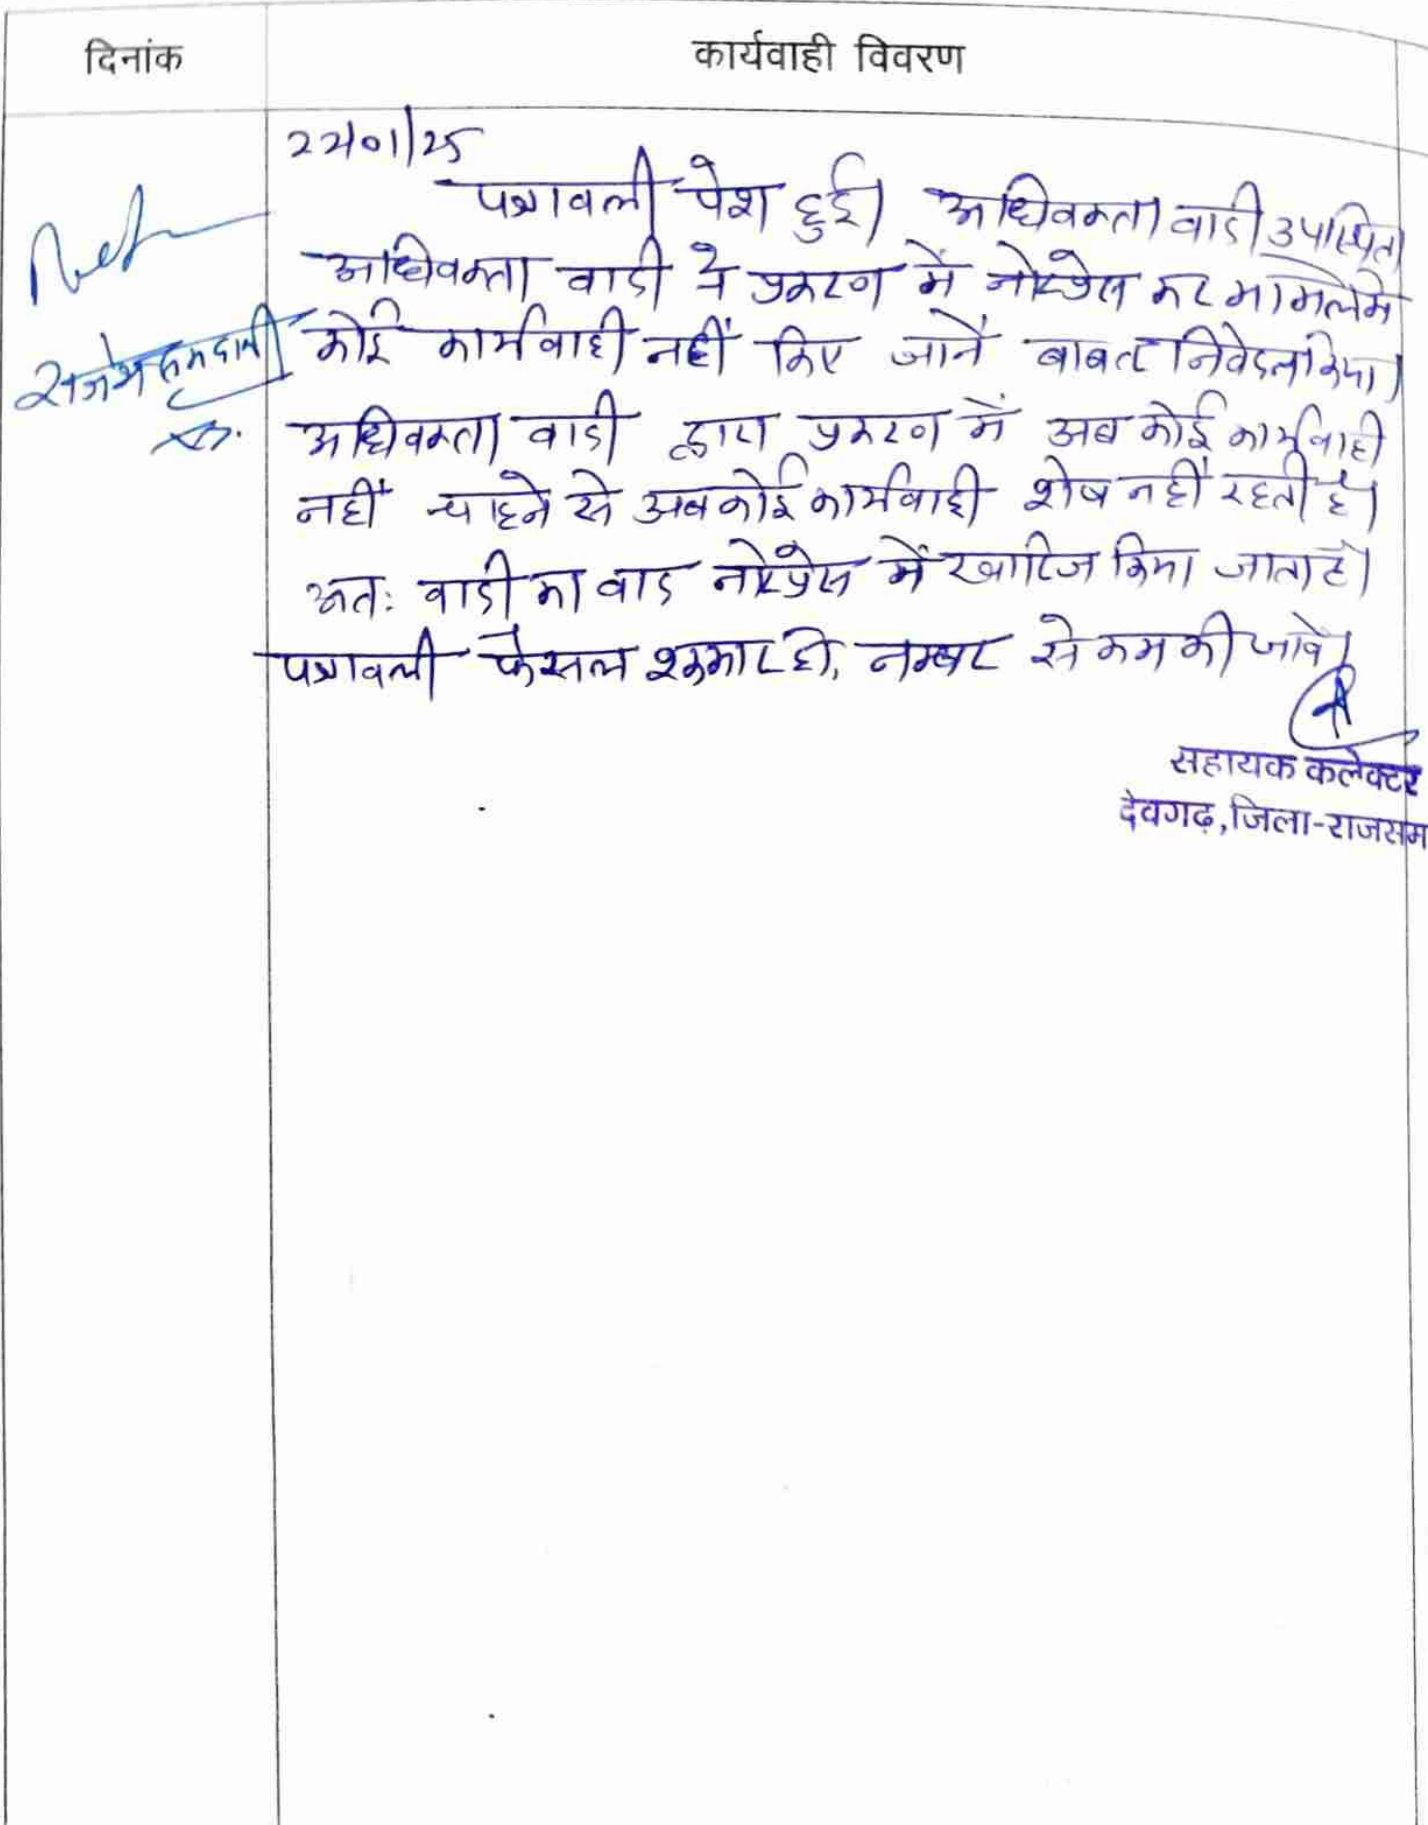 दिनांक
कार्यवाही विवरण
22/01/25
पत्रावली पेश हुई। अधिवक्ता वादी उपस्थित।
अधिवक्ता वादी ने प्रकरण में नोटप्रेस कर मामले में
कोई कार्यवाही नहीं किए जाने बाबत निवेदन किया।
अधिवक्ता वादी द्वारा प्रकरण में अब कोई कार्यवाही
नहीं चाहने से अब कोई कार्यवाही शेष नहीं रहती है।
अत: वादी का वाद नोटप्रेस में खारिज किया जाता है।
पत्रावली फैसल शुमार हो, नम्बर से कम की जावे।
सहायक कलेक्टर
देवगढ़, जिला-राजसम